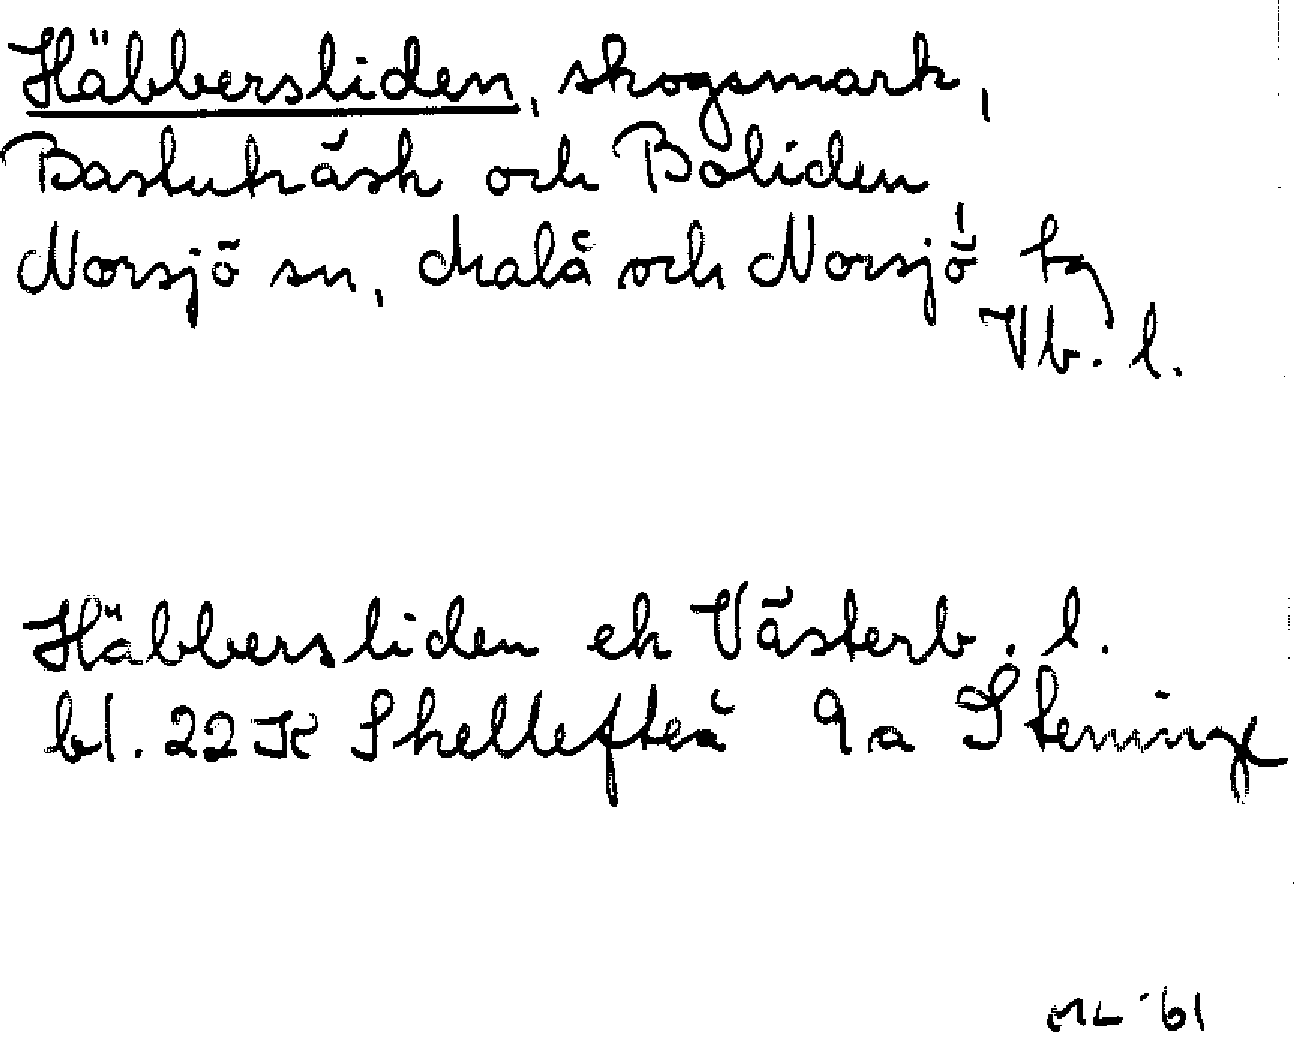 Häbbersliden, skogsmark,
Bastuträsk och Boliden
Norsjö sn, Malå och Norsjö tg
Vb. l.
Häbbersliden ek Västerb. l.
bl. 22K Skellefteå 9a Stening
ML '61